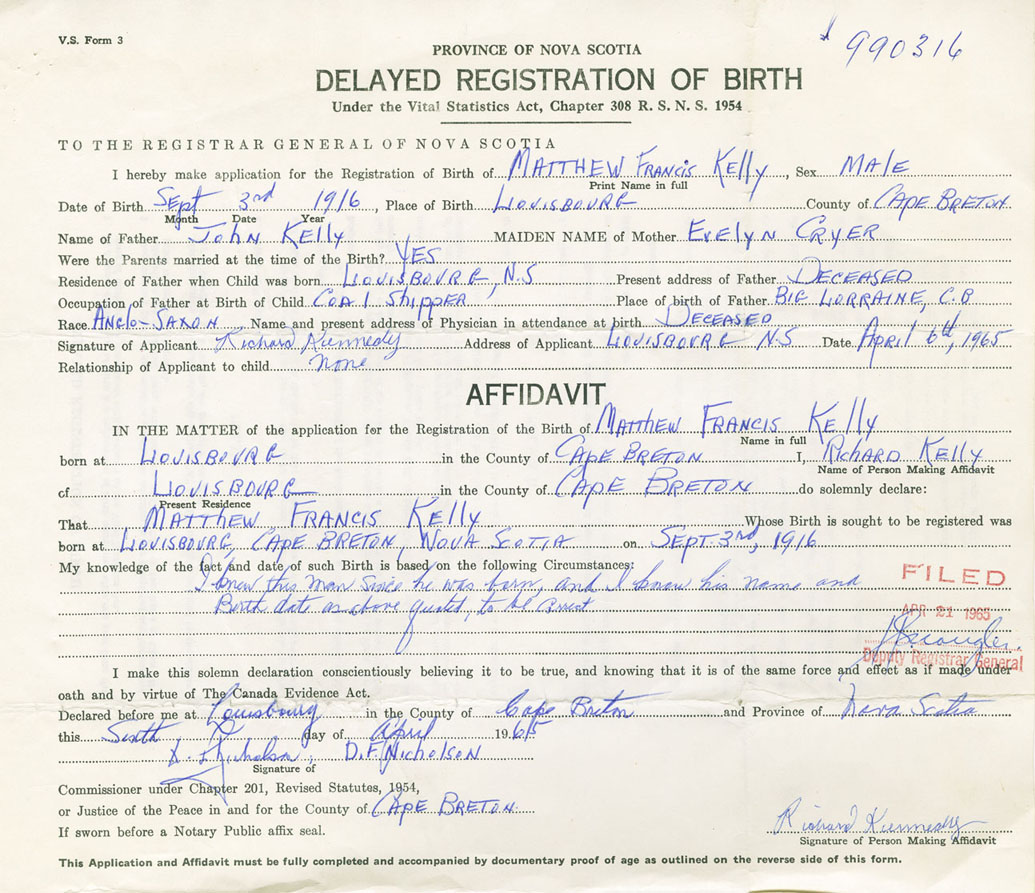 V.S. Form 3
990316
PROVINCE OF NOVA SCOTIA
DELAYED REGISTRATION OF BIRTH
Under the Vital Statistics Act, Chapter 308 R. S. N. S. 1954
TO THE REGISTRAR GENERAL OF NOVA SCOTIA
I hereby make application for the Registration of Birth of MATTHEW FRANCIS KELLY, Sex MALE
Print Name in full
Date of Birth SEPT 3rd 1916, Place of Birth LOUISBOURG County of CAPE BRETON
Month Date Year
Name of Father JOHN KELLY MAIDEN NAME of Mother EVELYN CRYER
Were the Parents married at the time of the Birth? YES
Residence of Father when Child was born LOUISBOURG, N.S Present address of Father DECEASED
Occupation of Father at Birth of Child COAL SHIPPER Place of birth of Father BIG LORRAINE, C.B
Race ANGLO-SAXON Name and present address of Physician in attendance at birth DECEASED
Signature of Applicant Richard Kennedy Address of Applicant LOUISBOURG N.S Date April 6th, 1965
Relationship of Applicant to child none
AFFIDAVIT
IN THE MATTER of the application for the Registration of the Birth of MATTHEW FRANCIS KELLY
Name in full
born at LOUISBOURG in the County of CAPE BRETON I, RICHARD KELLY
Name of Person Making Affidavit
of LOUISBOURG in the County of CAPE BRETON do solemnly declare:
Present Residence
That MATTHEW FRANCIS KELLY Whose Birth is sought to be registered was
born at LOUISBOURG, CAPE BRETON, NOVA SCOTIA on SEPT 3rd, 1916
My knowledge of the fact and date of such Birth is based on the following Circumstances:
I knew this man since he was born, and I know his name and
Birth date as above quoted, to be
FILED
APR 21 1965
Deputy Registrar General
I make this solemn declaration conscientiously believing it to be true, and knowing that it is of the same force and effect as if made under
oath and by virtue of The Canada Evidence Act.
Declared before me at Louisbourg in the County of Cape Breton and Province of Nova Scotia
this Sixth day of April 1965
D. F. Nicholson, D.F. NICHOLSON
Signature of
Commissioner under Chapter 201, Revised Statutes, 1954,
or Justice of the Peace in and for the County of CAPE BRETON
If sworn before a Notary Public affix seal.
Richard Kennedy
Signature of Person Making Affidavit
This Application and Affidavit must be fully completed and accompanied by documentary proof of age as outlined on the reverse side of this form.